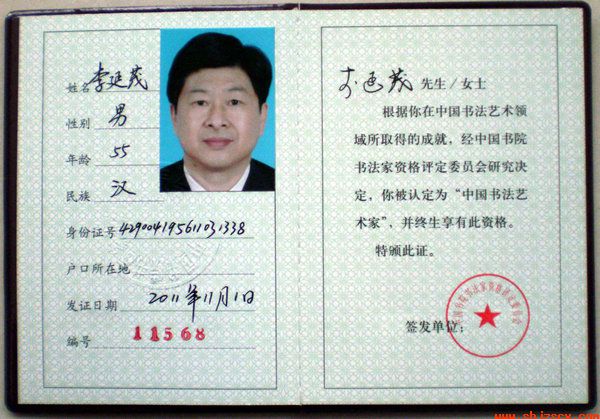 姓名 李延茂
性别 男
年龄 55
民族 汉
身份证号 429004195611031338
户口所在地
发证日期 2011年11月1日
编号 11568
李延茂 先生/女士
根据你在中国书法艺术领
域所取得的成就，经中国书院
书法家资格评定委员会研究决
定，你被认定为“中国书法艺
术家”，并终生享有此资格。
特颁此证。
签发单位：
中国书院书法家资格评定委员会
www.shjzssx.com